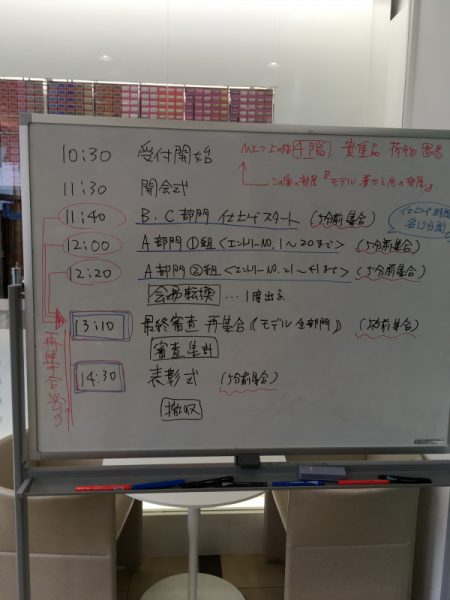 10:30 受付開始
ひとつ上の階 4階 貴重品 荷物
この階の部屋『モデル 着がえ用の部屋』
11:30 開会式
11:40 B.C部門 仕上げスタート (5分前集合)
仕上げ時間 各15分間
12:00 A部門①組<エントリーNO.1〜20まで> (5分前集合)
12:20 A部門②組<エントリーNO.21〜41まで> (5分前集合)
会場転換 …1度出る
13:10 最終審査 再集合《モデル全部門》 (5分前集合)
審査集計
14:30 表彰式 (5分前集合)
撤収
再集合